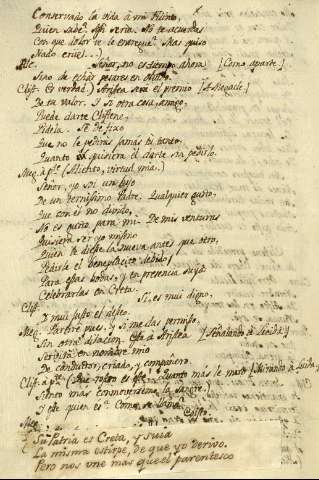 Conservado la vida à mi Filinto.
Quien sabe? Asi seria. No te acuerdas
Con que dolor te le entregué? Mas quiso
Hado cruel.
Alc. Señor, no es tiempo ahora [Como aparte.]
Sino de echar pesares en olvido.
Clist. Es verdad.) Aristea será el premio [A Megacle.]
De tu valor. Y si otra cosa, amigo,
Puede darte Clistene,
Pidela. Se de fixo
Que no le pediras jamas tu tanto,
Quanto el quisiera él darte sin pedirlo.
Meg. à pte. (Aliento, virtud mia.)
Señor, yo soi un hijo
De un ternisimo Padre. Qualquier gusto,
Que con el no divido,
No es gusto para mi. De mis venturas
Quisiera ser yo mismo
Quien le diese la nueva antes que otro,
Pedirle el beneplacito debido
Para estas bodas, y en presencia suya
Celebrarlas en Creta.
Clist. Si, es mui digno,
I mui justo el deseo.
Meg. Partiré pues, y si me das permiso,
Sin otra dilacion. Este à Aristea [Señalando à Licida.]
Servirá en nombre mio
De conductor, criado, y compañero.
Clist. à pte. (Que rostro es este! Quanto más le miro [Mirando à Licida,
Siento mas conmoverseme la sangre.)
I este quien es? Como se llama?
Meg. Egisto.
Su Patria es Creta, y suia
La misma estirpe, de que yo derivo.
Pero nos une mas que el parentesco